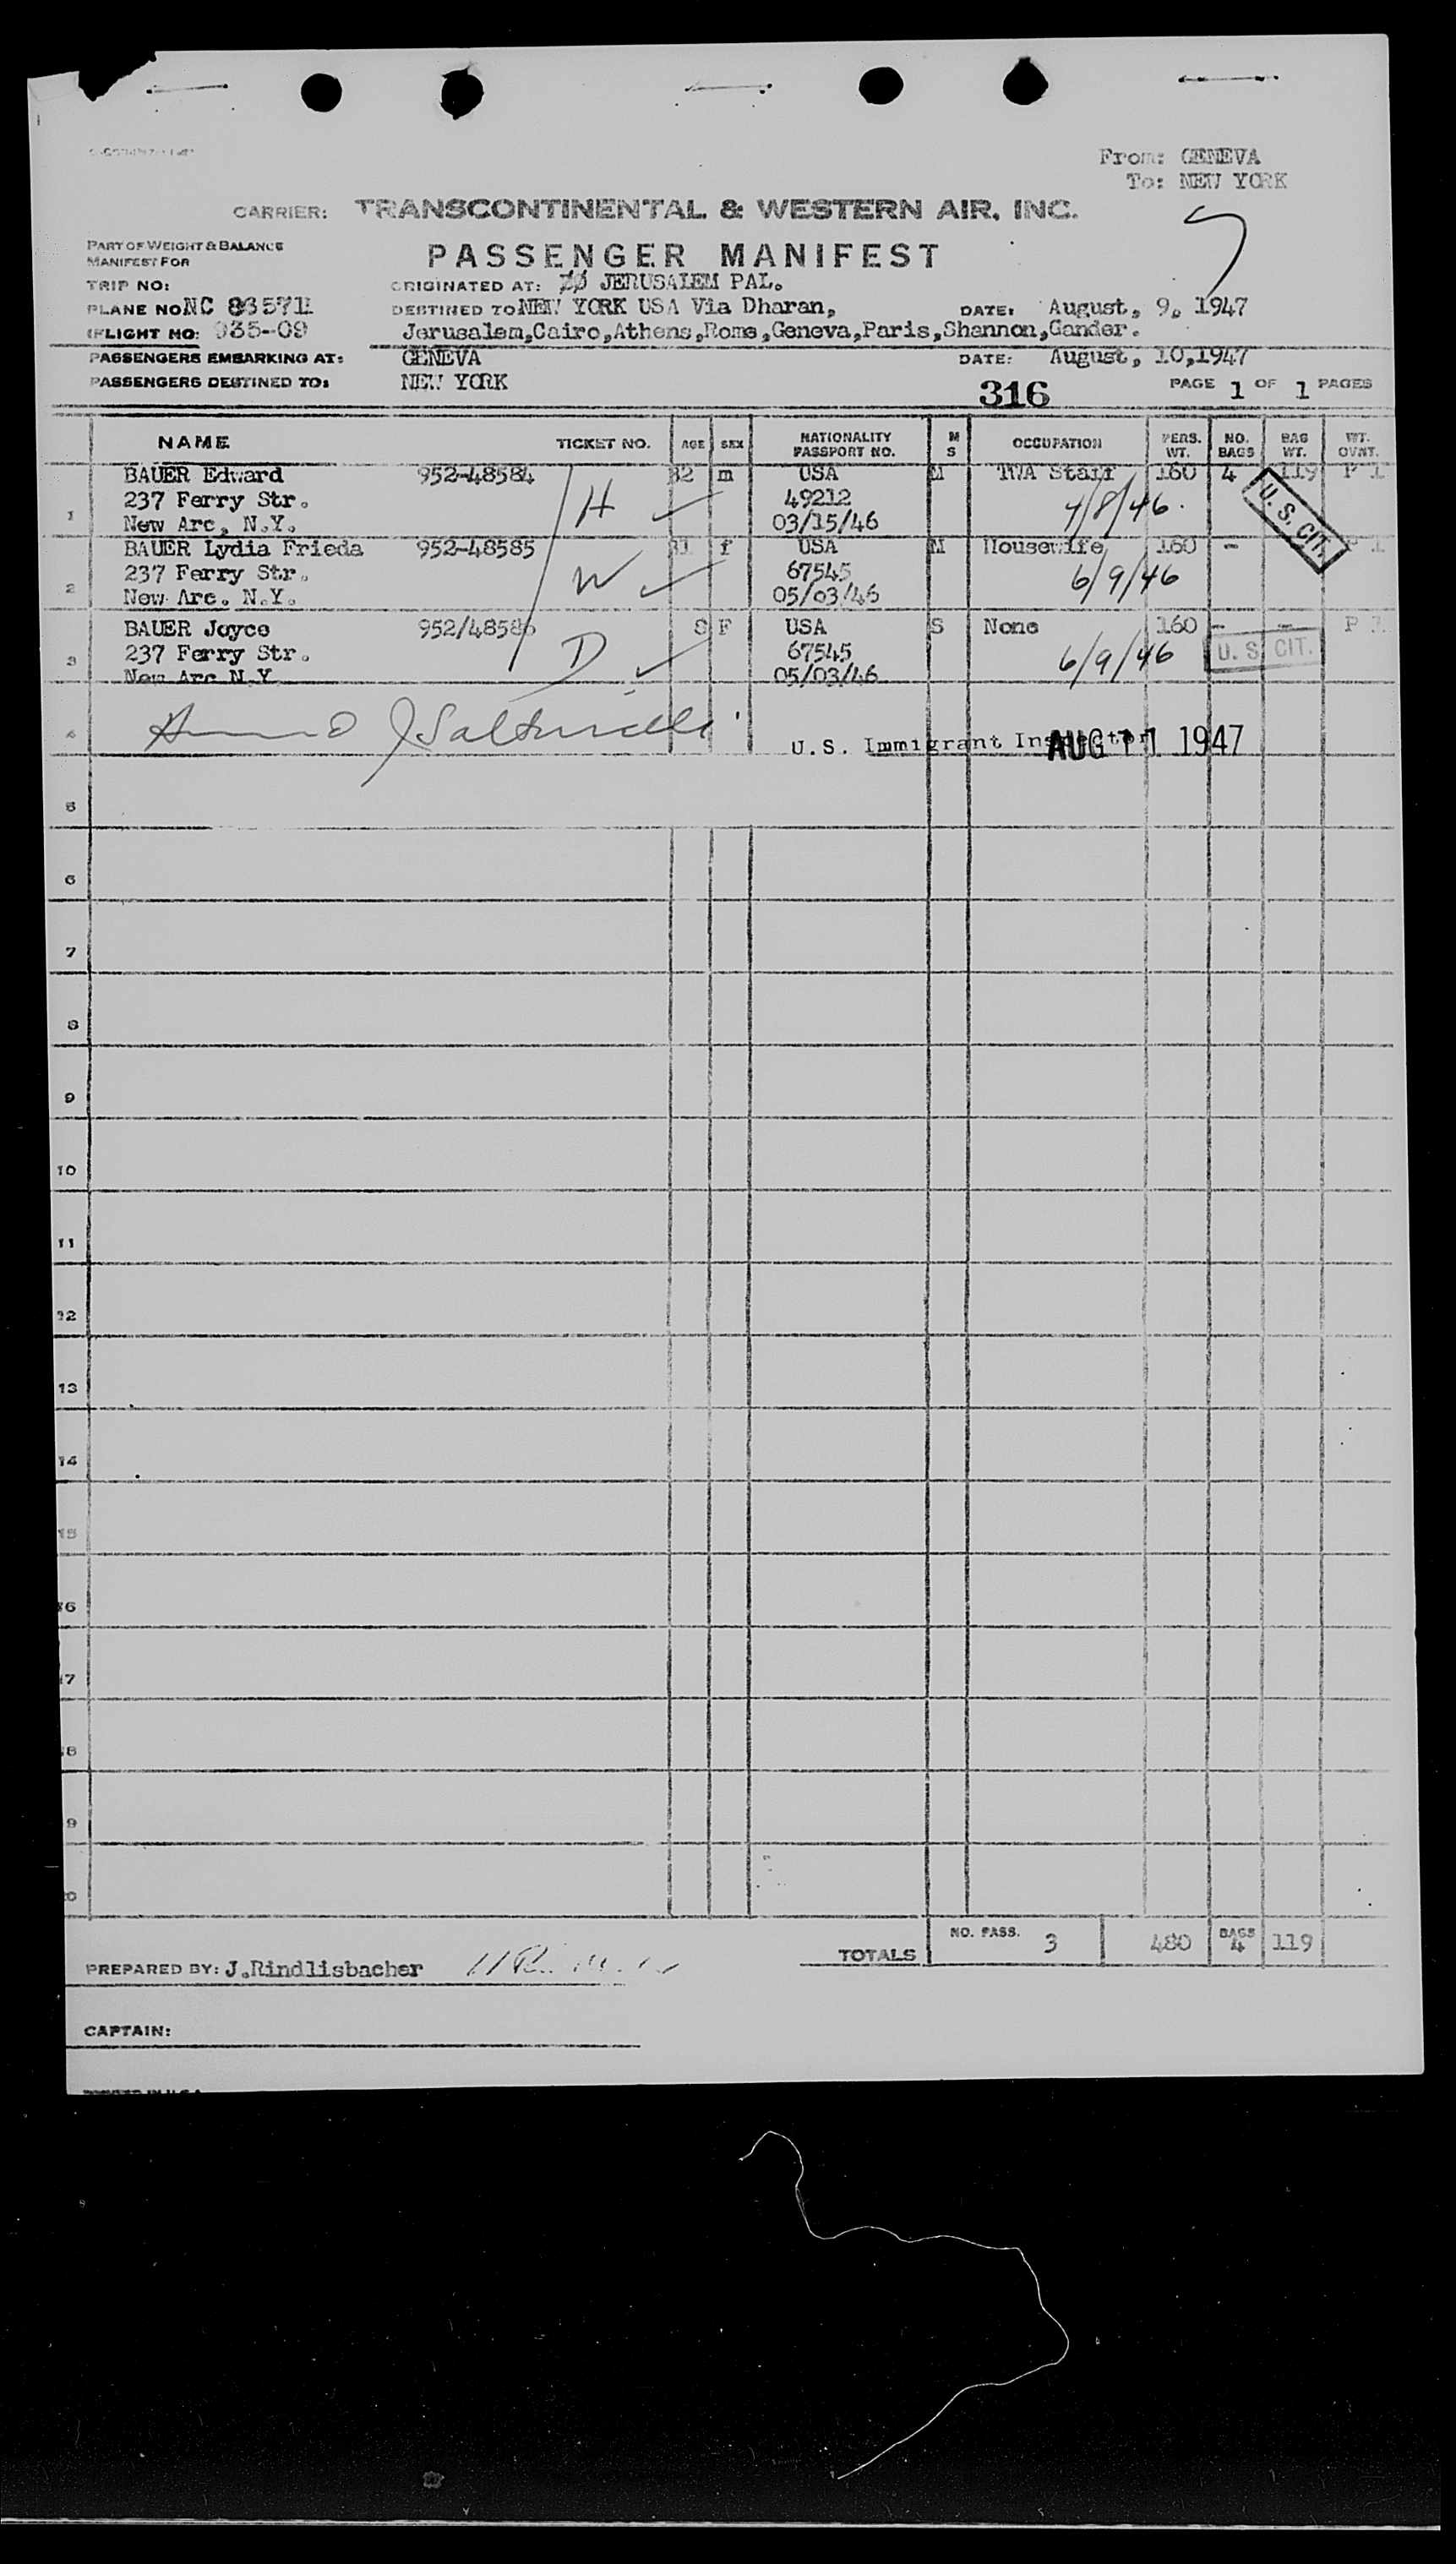 From: GENEVA
To: NEW YORK
CARRIER: TRANSCONTINENTAL & WESTERN AIR, INC.
PART OF WEIGHT & BALANCE
MANIFEST FOR
PASSENGER MANIFEST
TRIP NO:
ORIGINATED AT: JERUSALEM PAL.
PLANE NO NC 86571
DESTINED TO NEW YORK USA Via Dharan, DATE: August, 9, 1947
FLIGHT NO: 935-09 Jerusalem,Cairo,Athens,Rome,Geneva,Paris,Shannon,Gander.
PASSENGERS EMBARKING AT: GENEVA DATE: August, 10,1947
PASSENGERS DESTINED TO: NEW YORK 316 PAGE 1 OF 1 PAGES
NAME TICKET NO. AGE SEX NATIONALITY PASSPORT NO. M S OCCUPATION PERS. WT. NO. BAGS BAG WT. WT. OVNT.
BAUER Edward 952-48584 32 m USA M TWA Staff 160 4 119 P 1
237 Ferry Str. H 49212 4/8/46. U. S. CIT.
1 New Arc, N.Y. 03/15/46
BAUER Lydia Frieda 952-48585 31 f USA M Housewife 160 - - P 1
237 Ferry Str. W 67545 6/9/46
2 New Arc. N.Y. 05/03/46
BAUER Joyce 952/48586 8 F USA S None 160 - - P 1
237 Ferry Str. D 67545 6/9/46 U. S. CIT.
3 New Arc N.Y. 05/03/46
4 U.S. Immigrant Inspector AUG 11 1947
5
6
7
8
9
10
11
12
13
14
15
16
17
18
19
20
TOTALS NO. PASS. 3 480 BAGS 4 119
PREPARED BY: J.Rindlisbacher
CAPTAIN:
PRINTED IN U.S.A.